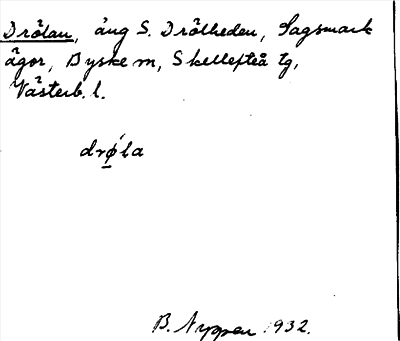 Drölan, äng S. Drölheden, Sagsmark
ägor, Byske m, Skellefteå tg,
Västerb. l.
drø̱´la
B. Nyppen 1932.